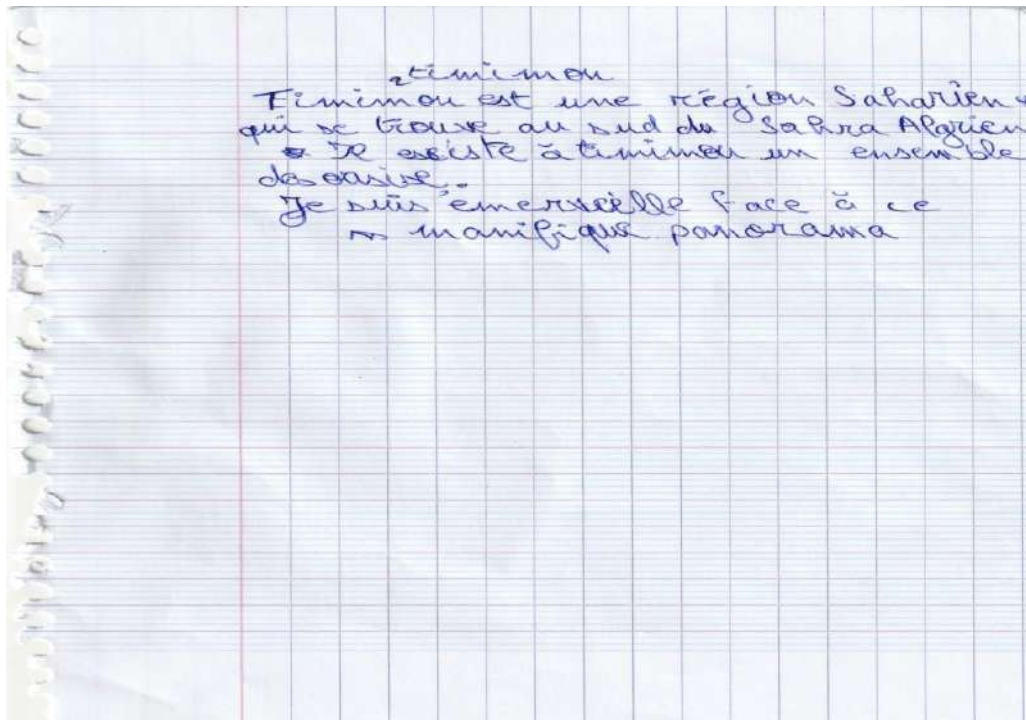 timimou
Timimou est une région Saharien
qui se trouve au sud du Sahra Algrien
Il existe à timimou un ensemble
des oasise.
Je suis émerveille face à ce
manifique panorama